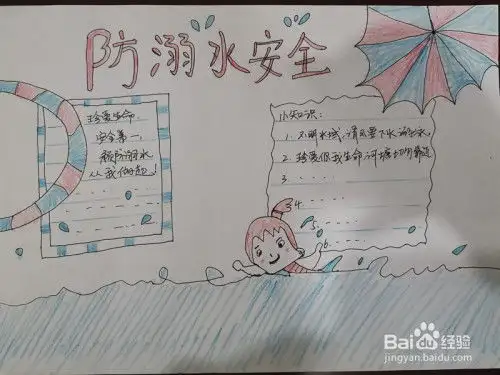 防溺水安全
珍爱生命
安全第一,
预防溺水
从我做起!
小知识:
1. 不明水域,请不要下水游泳。
2. 珍爱你我生命河塘切勿靠近
3
4.
5.
6.
Baidu经验
jingyan.baidu.com